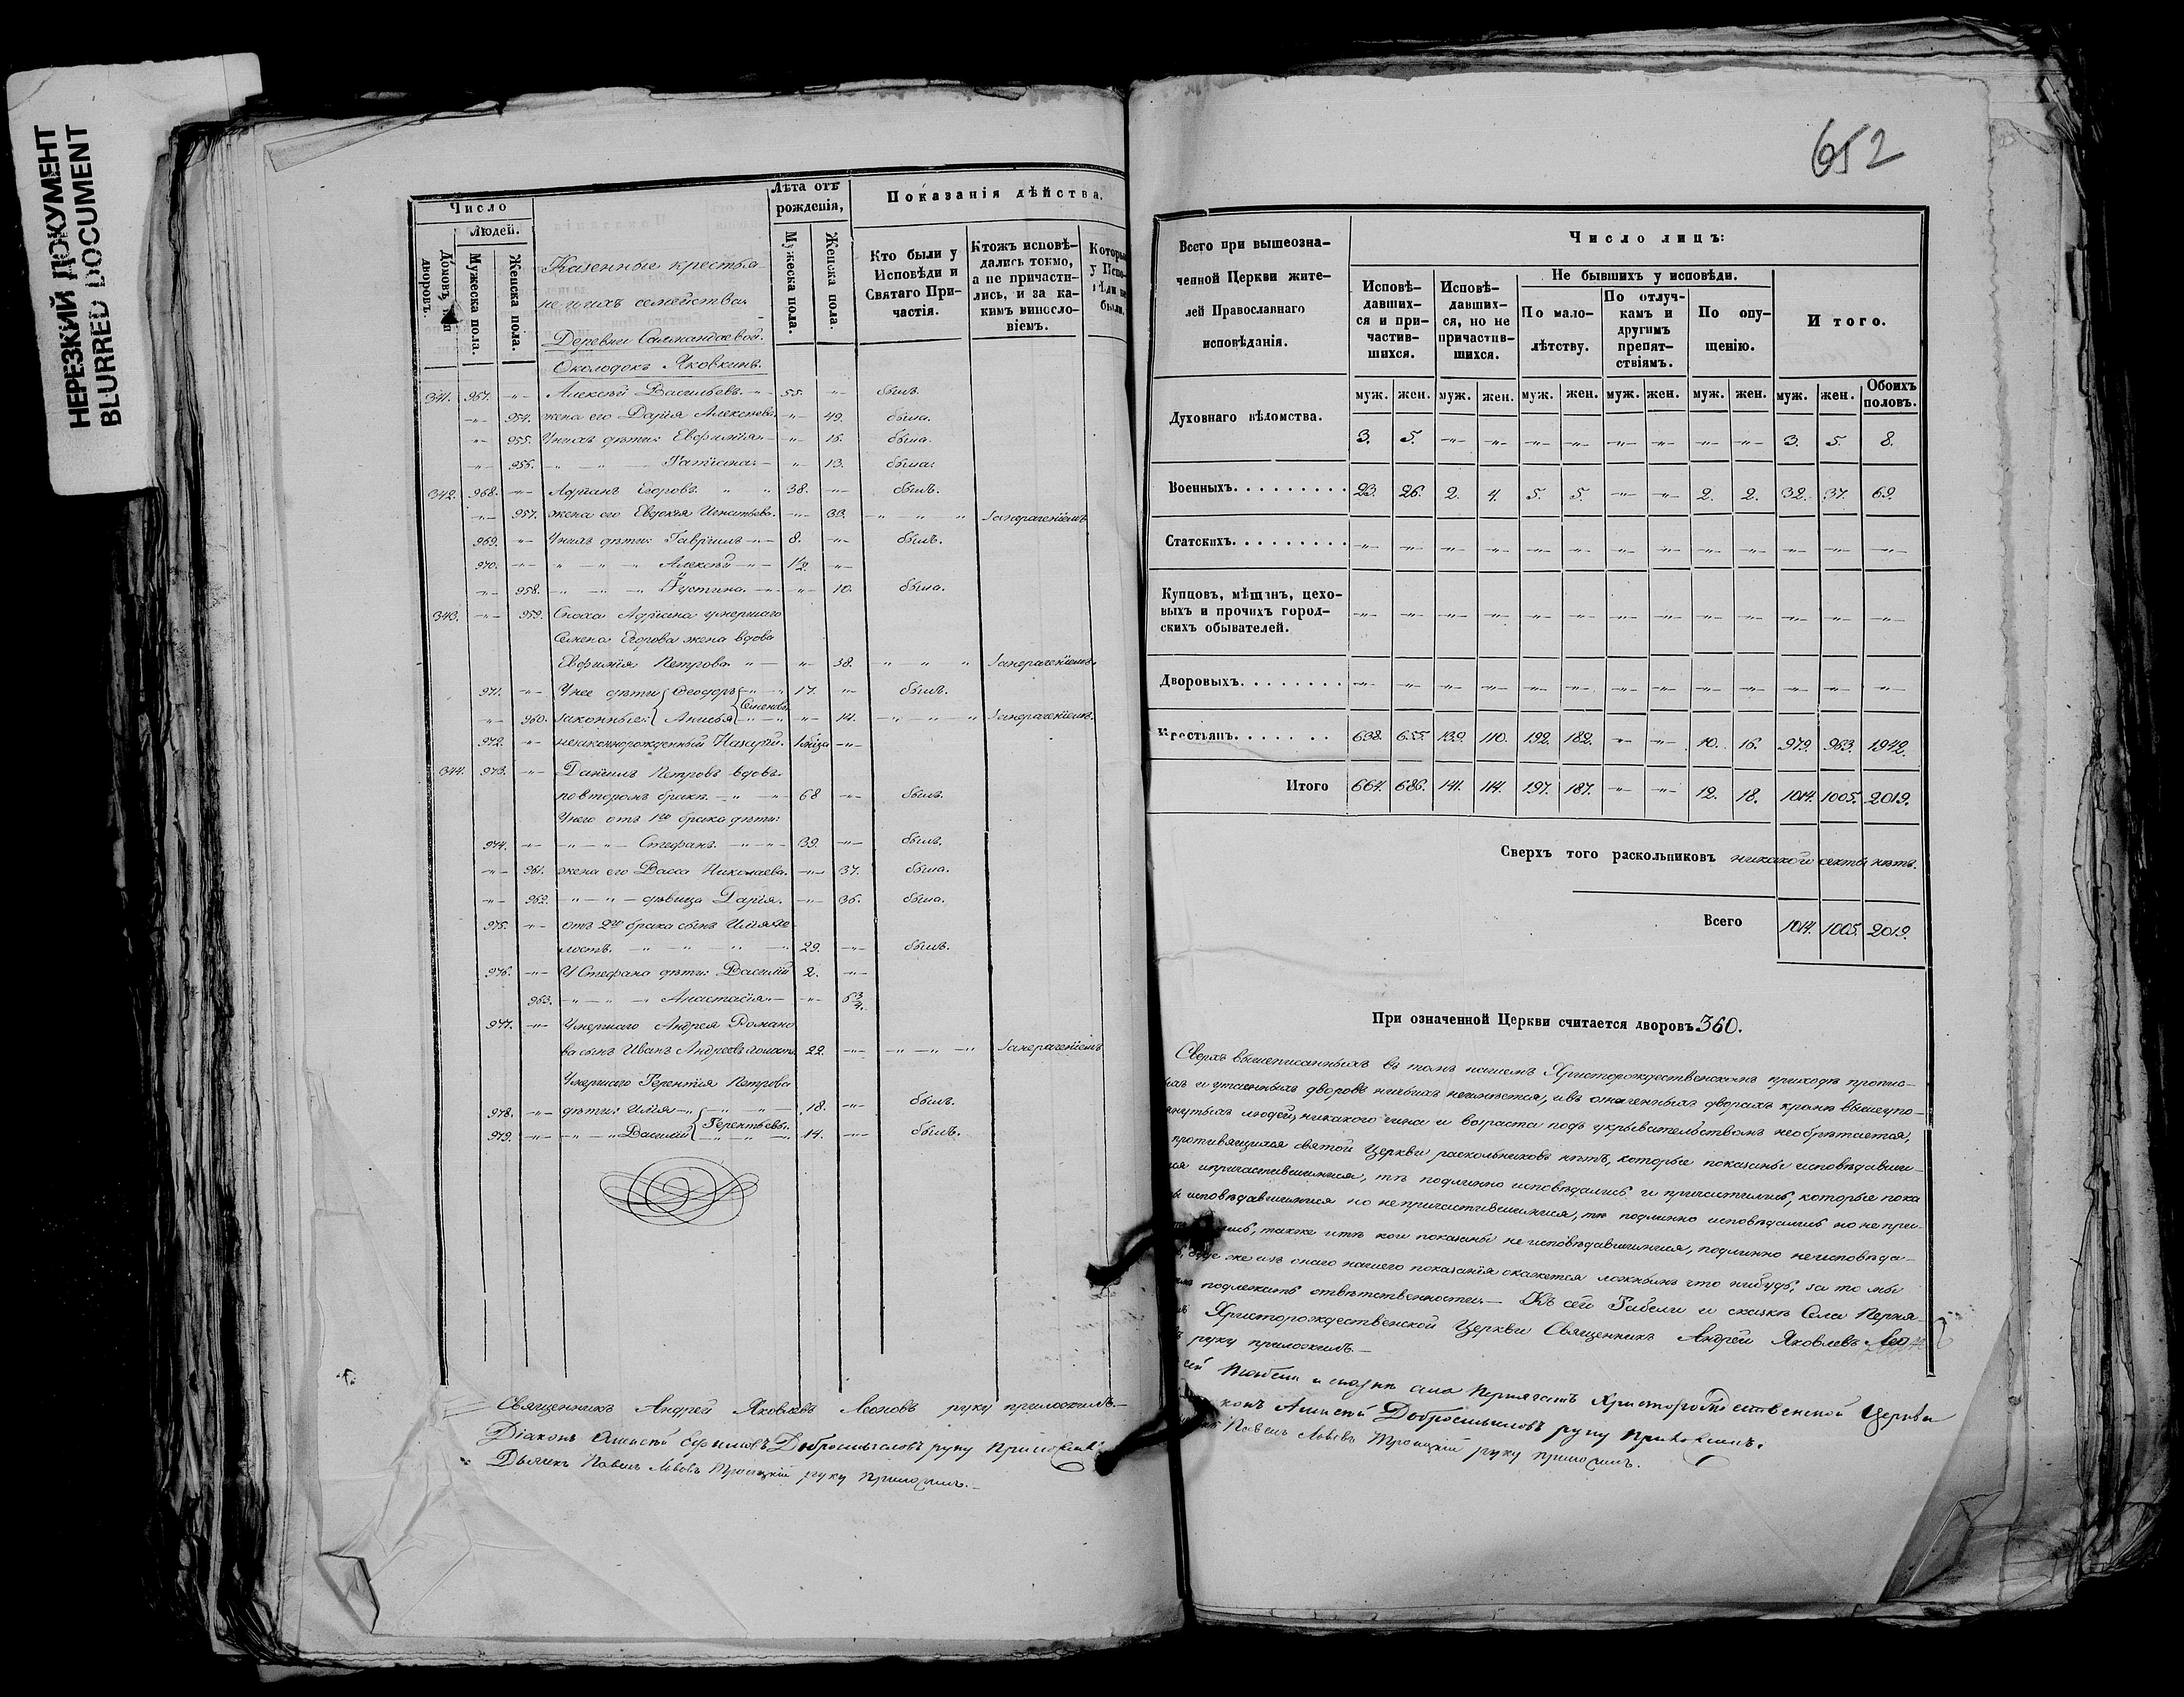 НЕРЕЗКИЙ ДОКУМЕНТ
BLURRED DOCUMENT
Число
Людей.
Домовъ или дворовъ.
Мужеска пола.
Женска пола.
Казенные крестья-
не и ихъ семейства.
Деревни
Околодокъ Яковкинъ.
Лѣта отъ рожденія,
Мужеска пола.
Женска пола.
Показанія дѣйства.
Кто были у Исповѣди и Святаго Причастія.
Ктожъ исповѣдались токмо, а не причастились, и за какимъ винословіемъ.
341. 967. -"- Алексѣй Васильевъ. 55. -"- былъ.
-"- 954. жена его Дарія Алексѣева. -"- 49. была.
-"- 955. У нихъ дѣти: Евфимія -"- 16. была.
-"- 956. Татіана -"- 13. была.
342. 968. -"- Адріанъ Егоровъ. 38. -"- былъ.
-"- 957. жена его Евдокія Игнатьева. -"- 39.
969. -"- У нихъ дѣти: Гавріилъ 8. -"- былъ.
970. -"- Алексѣй 1/2. -"-
-"- 958. Іустина. -"- 10. была.
343. -"- 959. Сноха Адріана умершаго
Семена Егорова жена вдова
Евфимія Петрова -"- 38.
971. -"- У нее дѣти Ѳеодоръ 17. -"- былъ.
Семеновы
-"- 960. законные: Анисья -"- 14.
972. -"- незаконнорожденный Назарій. -"-
344. 973. -"- Даніилъ Петровъ вдовъ
по второмъ бракѣ. 68 -"- былъ.
У него отъ 1го брака дѣти:
974. -"- Стефанъ. 39. -"- былъ.
-"- 961. жена его Васса Николаева. -"- 37. была.
-"- 962. дѣвица Дарія. -"- 36. была.
975. -"- отъ 2го брака сынъ Илія
29. -"- былъ.
976. -"- У Стефана дѣти: Василій 2. -"-
963. Анастасія -"- 6 3/4.
977. -"- Умершаго Андрея Романо
ва сынъ Иванъ Андреевъ 22. -"-
Умершаго Терентія Петрова
978. -"- дѣти: Илія 18. -"- былъ.
Терентьевы.
979. -"- Василій 14. -"- былъ.
Священникъ Андрей Яковлевъ Леоновъ руку приложилъ.
Діаконъ Алексѣй Ефимовъ Добросмысловъ руку приложилъ
Дьячекъ Павелъ Львовъ Троицкій руку приложилъ.
652
Всего при вышеозна-
ченной Церкви жите-
лей Православнаго
исповѣданія.
Число лицъ:
Исповѣдавшихся и причастившихся.
Исповѣдавшихся, но не причастившихся.
Не бывшихъ у исповѣди.
По малолѣтству.
По отлучкамъ и другимъ препятствіямъ.
По опущенію.
Итого.
муж. жен. муж. жен. муж. жен. муж. жен. муж. жен. муж. жен. Обоихъ половъ.
Духовнаго вѣдомства. 3. 5. -"- -"- -"- -"- -"- -"- -"- -"- 3. 5. 8.
Военныхъ. 23. 26. 2. 4. 5. 5. -"- -"- 2. 2. 32. 37. 69.
Статскихъ. -"- -"- -"- -"- -"- -"- -"- -"- -"- -"- -"- -"- -"-
Купцовъ, мѣщанъ, цехо-
выхъ и прочихъ город- -"- -"- -"- -"- -"- -"- -"- -"- -"- -"- -"- -"- -"-
скихъ обывателей.
Дворовыхъ. -"- -"- -"- -"- -"- -"- -"- -"- -"- -"- -"- -"- -"-
Крестьянъ. 638. 655. 139. 110. 192. 182. -"- -"- 10. 16. 979. 963. 1942.
Итого 664. 686. 141. 114. 197. 187. -"- -"- 12. 18. 1014. 1005. 2019.
Сверхъ того раскольниковъ никакой секты нѣтъ.
Всего 1014. 1005. 2019.
При означенной Церкви считается дворовъ 360.
Сверхъ вышеписанныхъ въ томъ нашемъ Христорождественскомъ приходѣ пропис-
и утаенныхъ дворовъ ничьихъ неимѣется, и въ означенныхъ дворахъ кромѣ вышеупо-
мянутыхъ людей, никакого чина и возраста подъ укрывательствомъ необрѣтается,
противящихся святой Церкви раскольниковъ нѣтъ, которые показаны исповѣдавши-
мися и причастившимися, тѣ подлинно исповѣдались и причастились, которые пока
исповѣдавшимися но не причастившимися, тѣ подлинно исповѣдались но не при-
также и тѣ кои показаны не исповѣдавшимися, подлинно не исповѣда-
же изъ онаго нашего показанія окажется ложнымъ что нибудь, за то мы
подлежимъ отвѣтственности. — Къ сей Табели и сказкѣ Села Перня-
Христорождественской Церкви Священникъ Андрей Яковлевъ
руку приложилъ.
сей Табели и сказкѣ села Христорождественской Церкви
Алексѣй Добросмысловъ руку приложилъ.
Павелъ Львовъ Троицкій руку приложилъ.